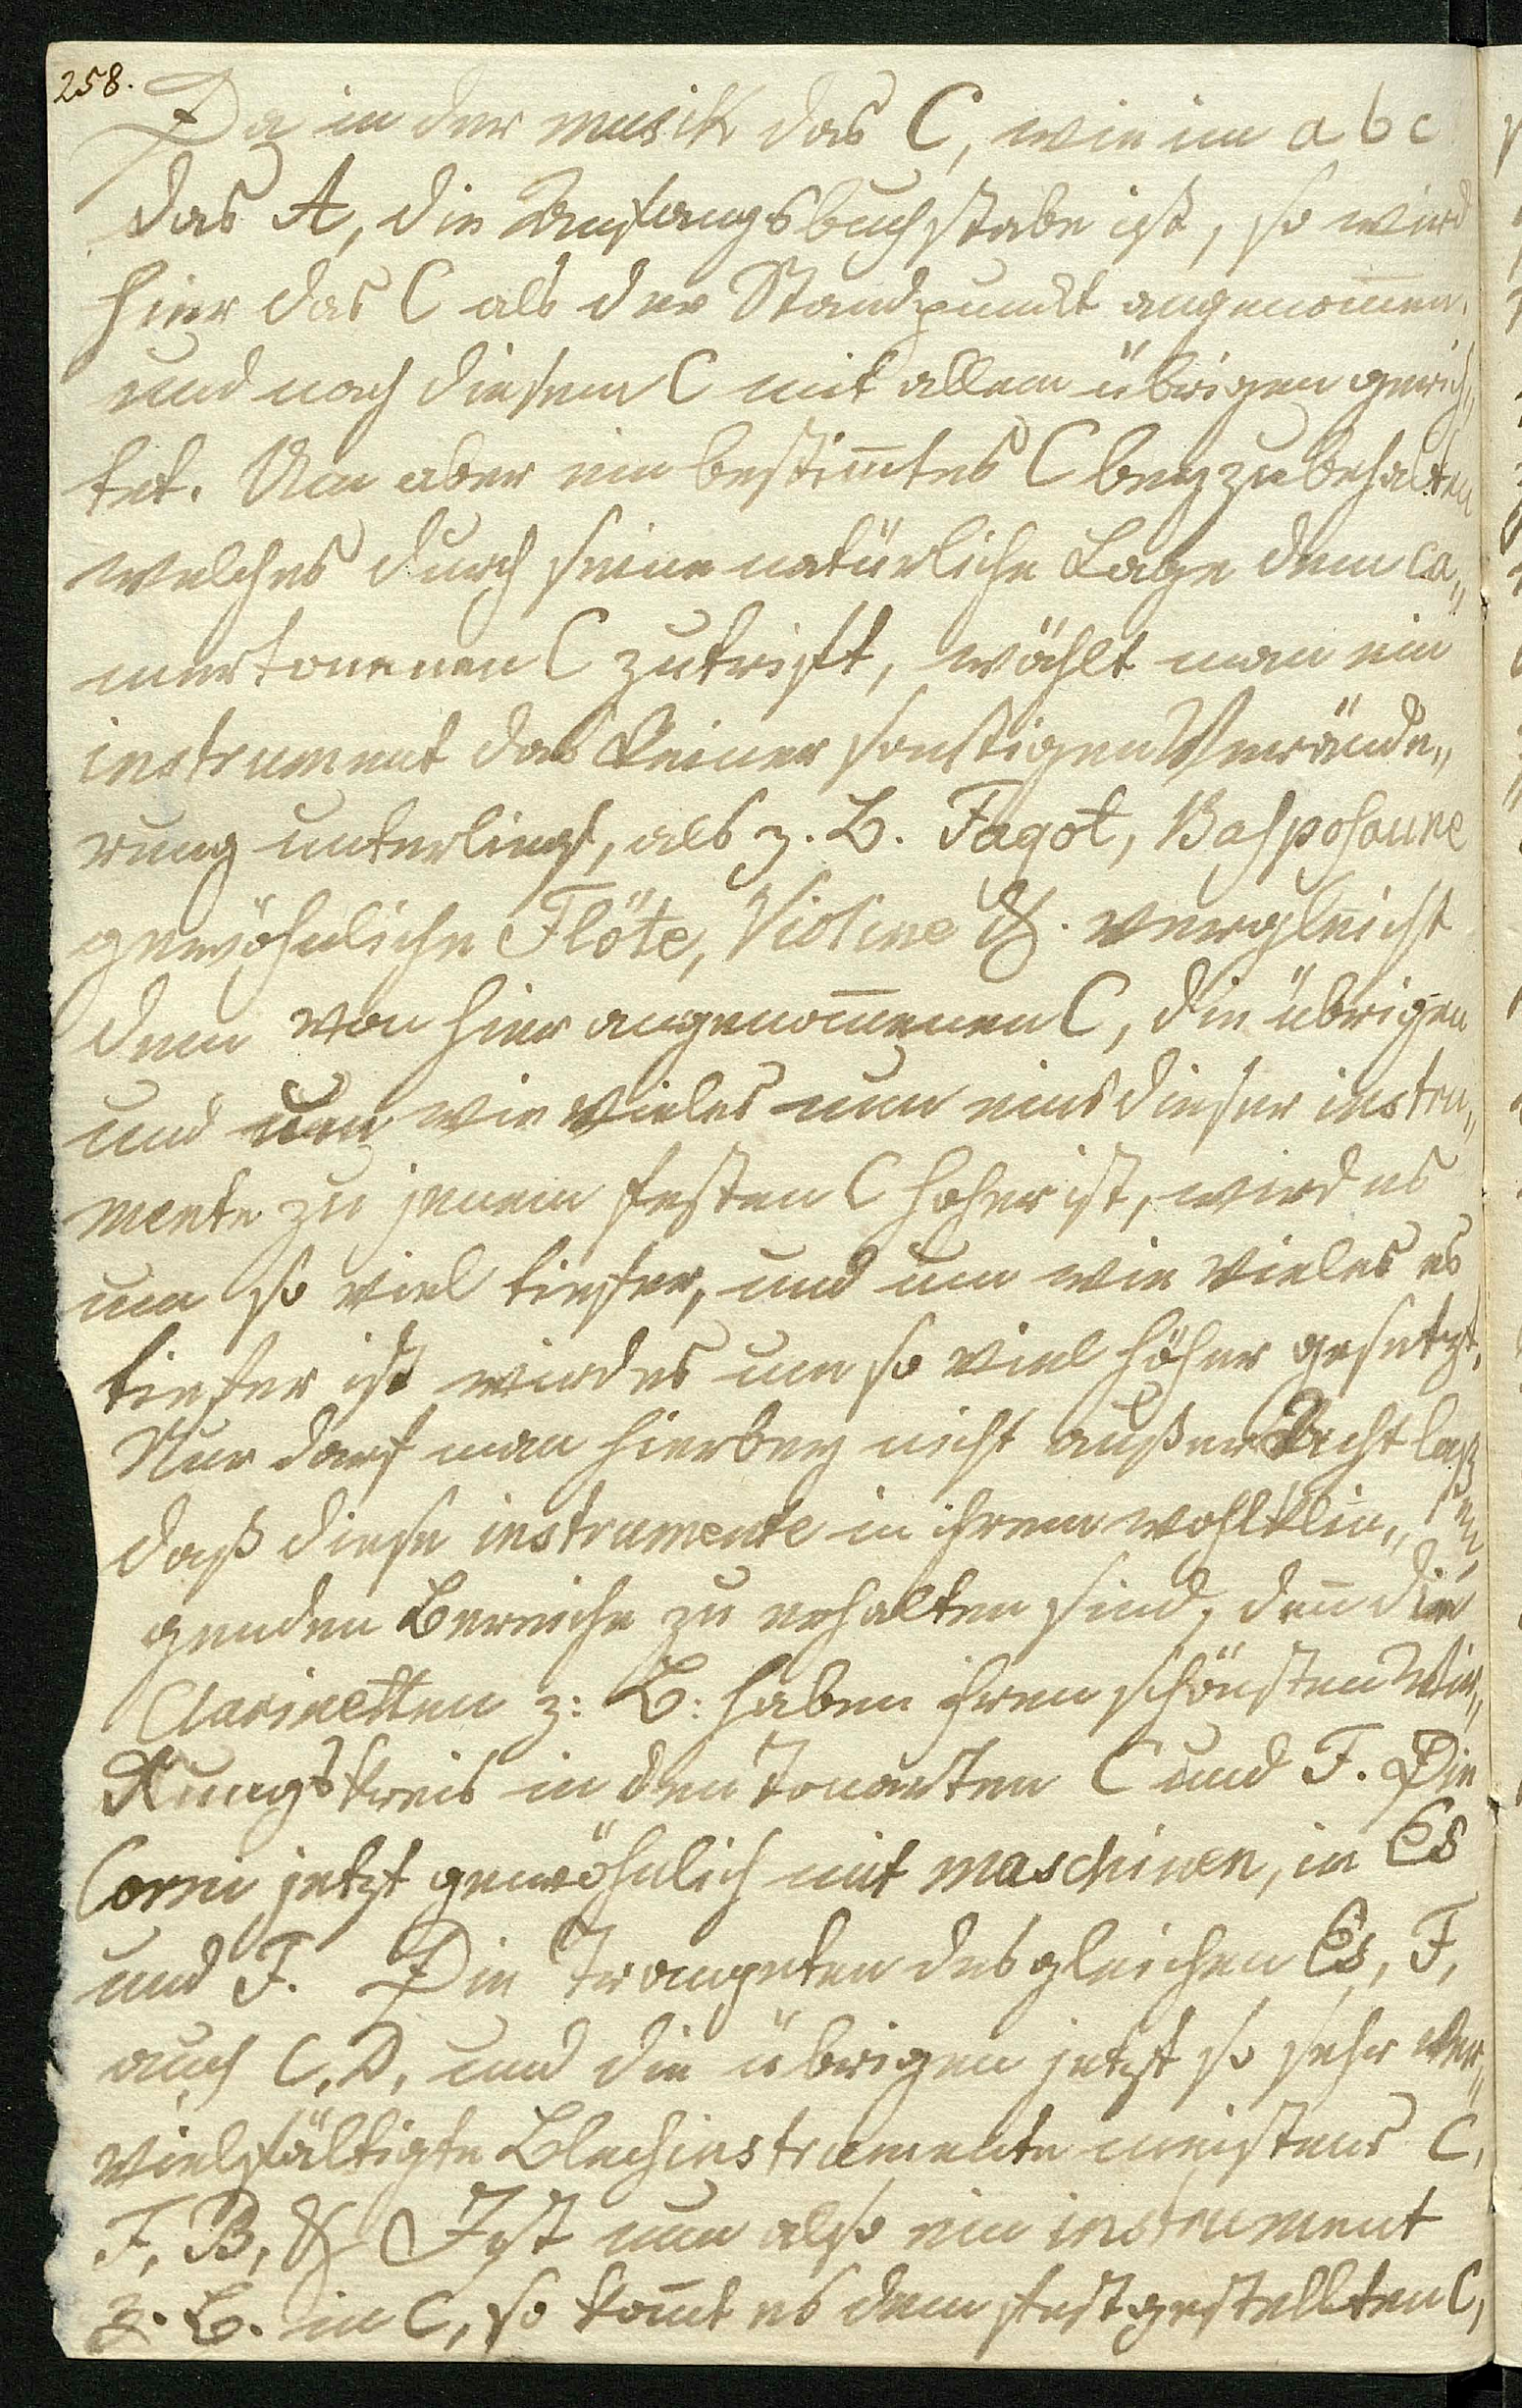 258.
Da in der musik das C, wie im a b c
das A, die Anfangsbuchstabe ist, so wird
hier das C als der Standpunckt angenom̅en.
und nach diesem C mit allem übrigen gerich„
tet. Um aber ein bestim̅tes C beyzubehalten
welches durch seine natürliche Lage dem ca„
mertonenen C zutrifft, wählt man ein
instrument das keiner sonstigen Verände„
rung unterliegt, als z. B. Fagot, Bassposaune
gewöhnliche Flöte, Violine &. vergleicht
dem von hier angenom̅enen C, die übrigen
und um wie vieles nun eins dieser instru„
mente zu jenem festen C hoher ist, wird es
um so viel tiefer, und um wie vieles es
tiefer ist wird es um so viel höher gesetzt.
Nur darf man hierbey nicht außer Acht laß
daß diese instrumente in ihrem wohlklin„ sen,
genden Bereiche zu erhalten sind, den̅ die
Clarinetten z: B: haben ihren schönsten Wir„
kungskreis in den Tonarten C und F. Die
Corni jetzt gewöhnlich mit maschinen, in Es
und F. Die Trompeten desgleichen Es, F,
auch C, D, und die übrigen jetzt so sehr ver„
vielfältigte Blechinstrumente meistens C,
F, B, & Ist nun also ein instrument
z. B. in C, so kom̅t es dem festgestellten C,